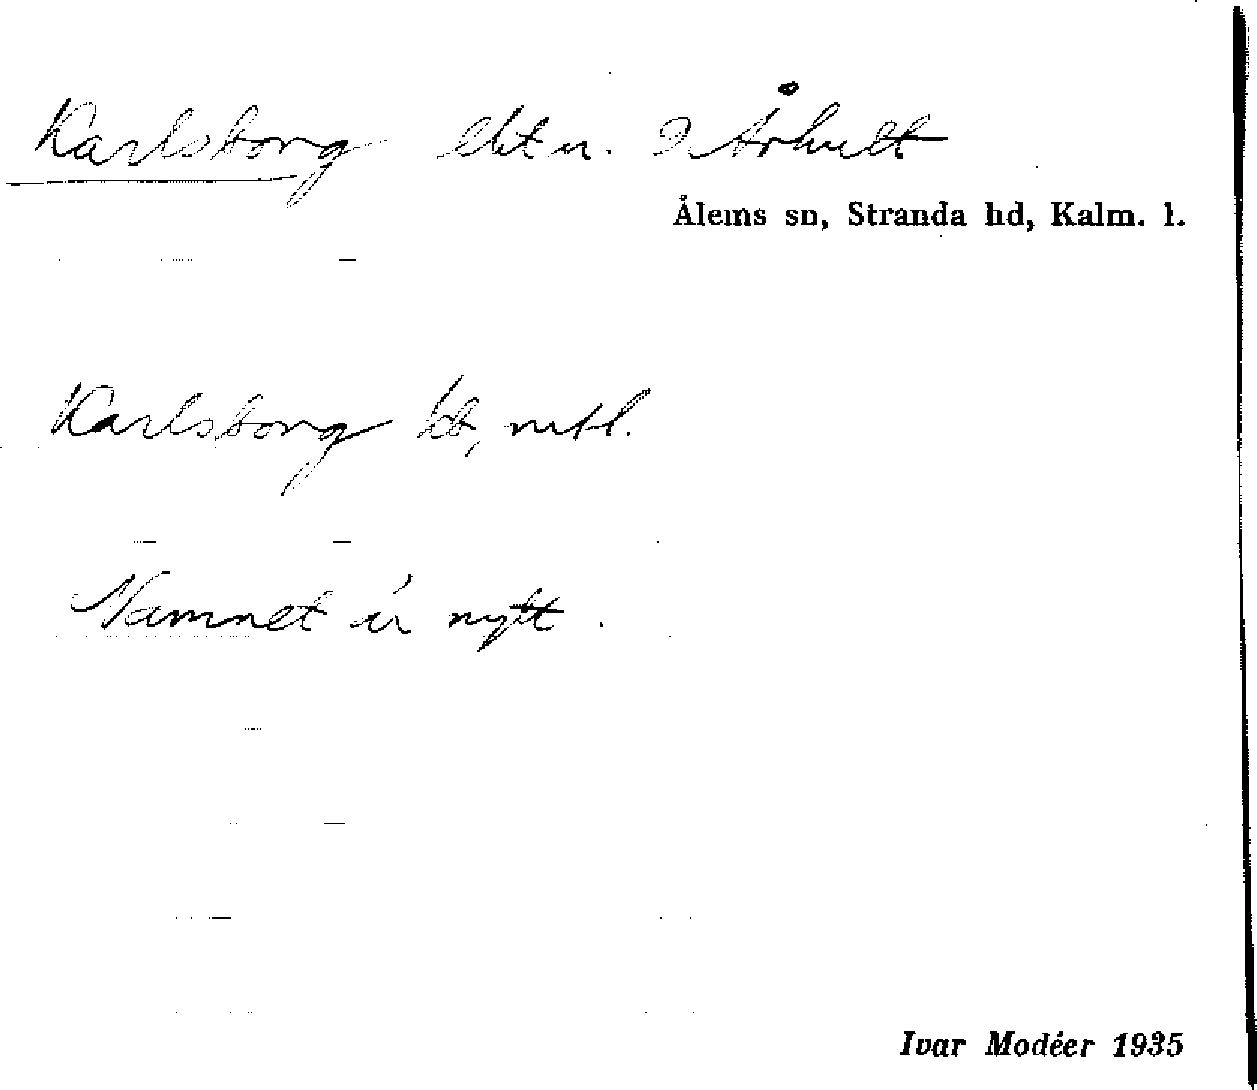 Karlsborg lht u. 2 Århult
Ålems sn, Stranda hd, Kalm. l.
Karlsborg lht, mtl.
Namnet är nytt.
Ivar Modéer 1935